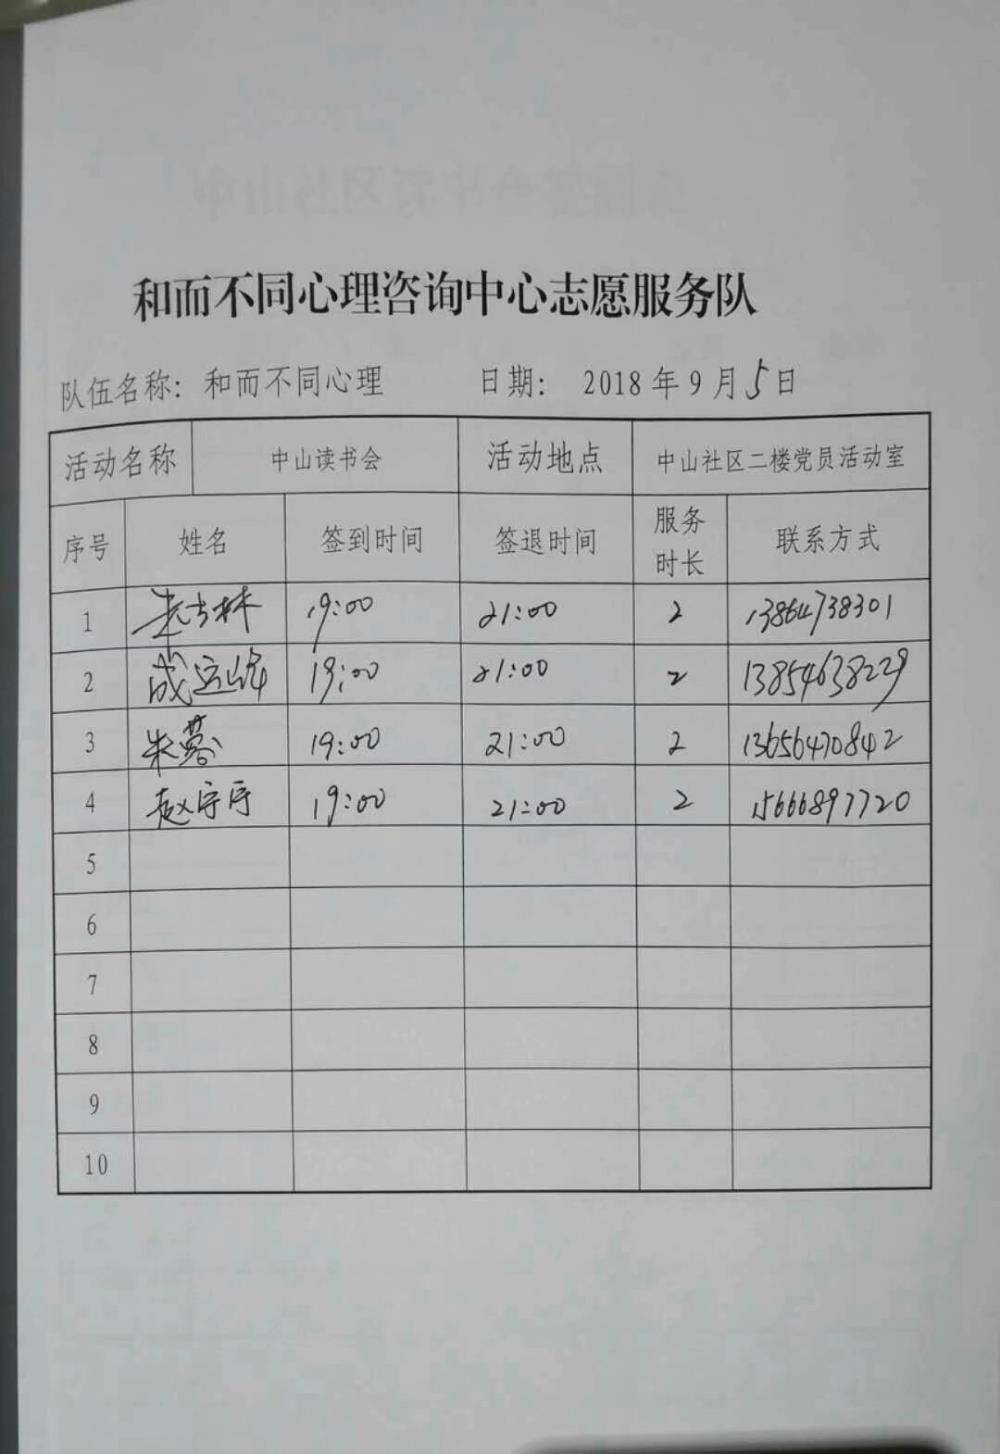 和而不同心理咨询中心志愿服务队
队伍名称: 和而不同心理 日期: 2018 年 9 月 5 日
活动名称 中山读书会 活动地点 中山社区二楼党员活动室
序号 姓名 签到时间 签退时间 服务时长 联系方式
1 19:00 21:00 2 13864738301
2 成运峰 19:00 21:00 2 13854638229
3 朱蓉 19:00 21:00 2 13656470842
4 赵宁宁 19:00 21:00 2 15666897720
5
6
7
8
9
10